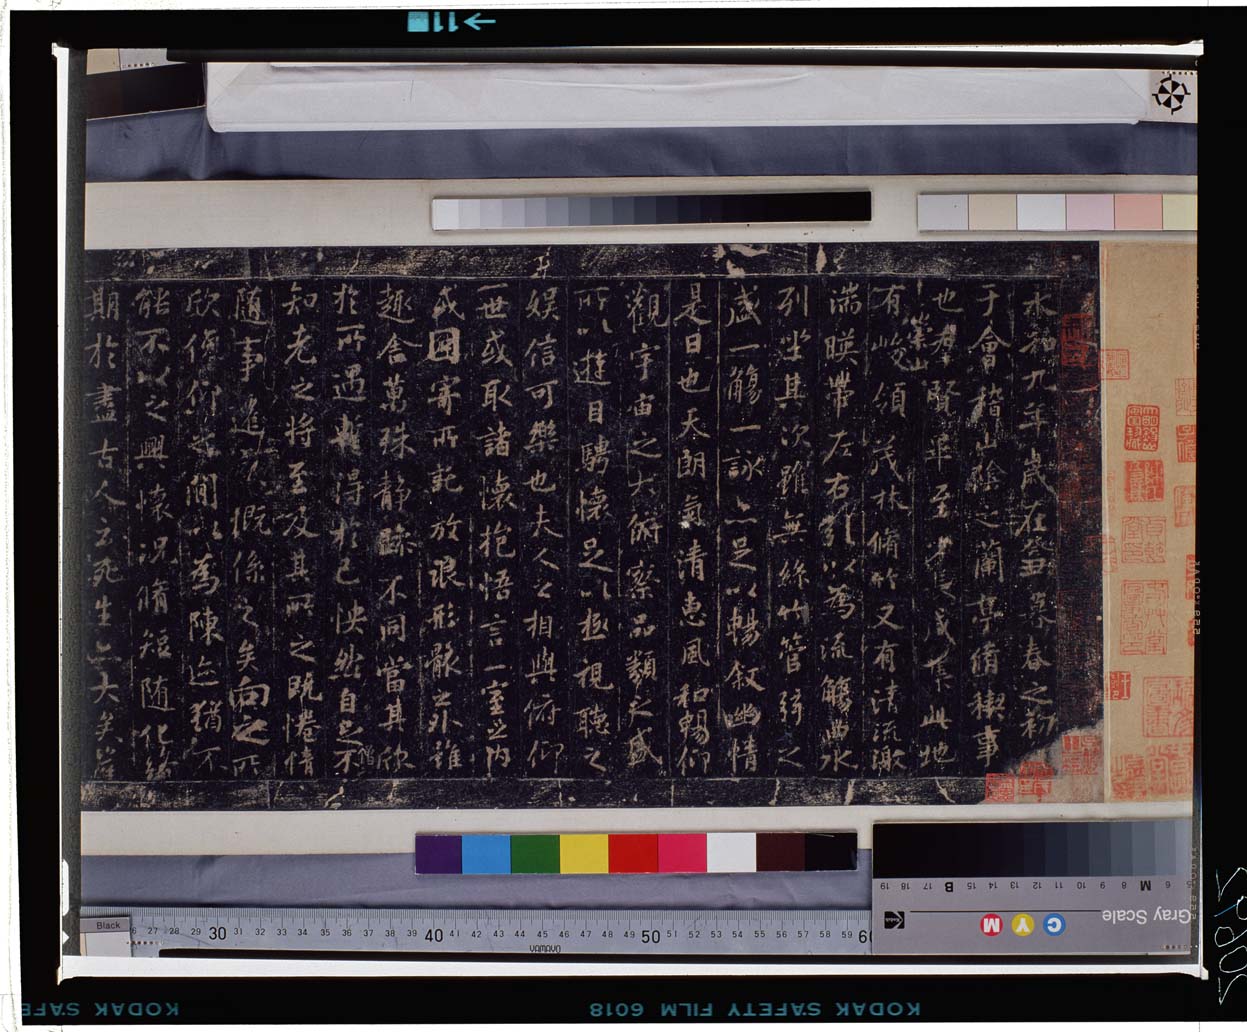 永和九年歲在癸丑暮春之初
于會稽山陰之蘭亭脩稧事
也羣賢畢至少長咸集此地
有崇山峻領茂林脩竹又有清流激
湍暎帶左右引以為流觴曲水
列坐其次雖無絲竹管弦之
盛一觴一詠亦足以暢敘幽情
是日也天朗氣清惠風和暢仰
觀宇宙之大俯察品類之盛
所以遊目騁懷足以極視聽之
娛信可樂也夫人之相與俯仰
一世或取諸懷抱悟言一室之內
或因寄所託放浪形骸之外雖
趣舍萬殊靜躁不同當其欣
於所遇暫得於己怏然自足不
僧
知老之將至及其所之既惓情
隨事遷感慨係之矣向之所
欣俛仰之閒以為陳迹猶不
能不以之興懷況脩短隨化終
期於盡古人云死生亦大矣豈
11
Black
27 28 29 30 31 32 33 34 35 36 37 38 39 40 41 42 43 44 45 46 47 48 49 50 51 52 53 54 55 56 57 58 59
Gray Scale
C Y M
Kodak
M 7 8 9 10 11 12 13 14 15 B 17 18 19
KODAK SAFETY FILM 6018
KODAK SAFE